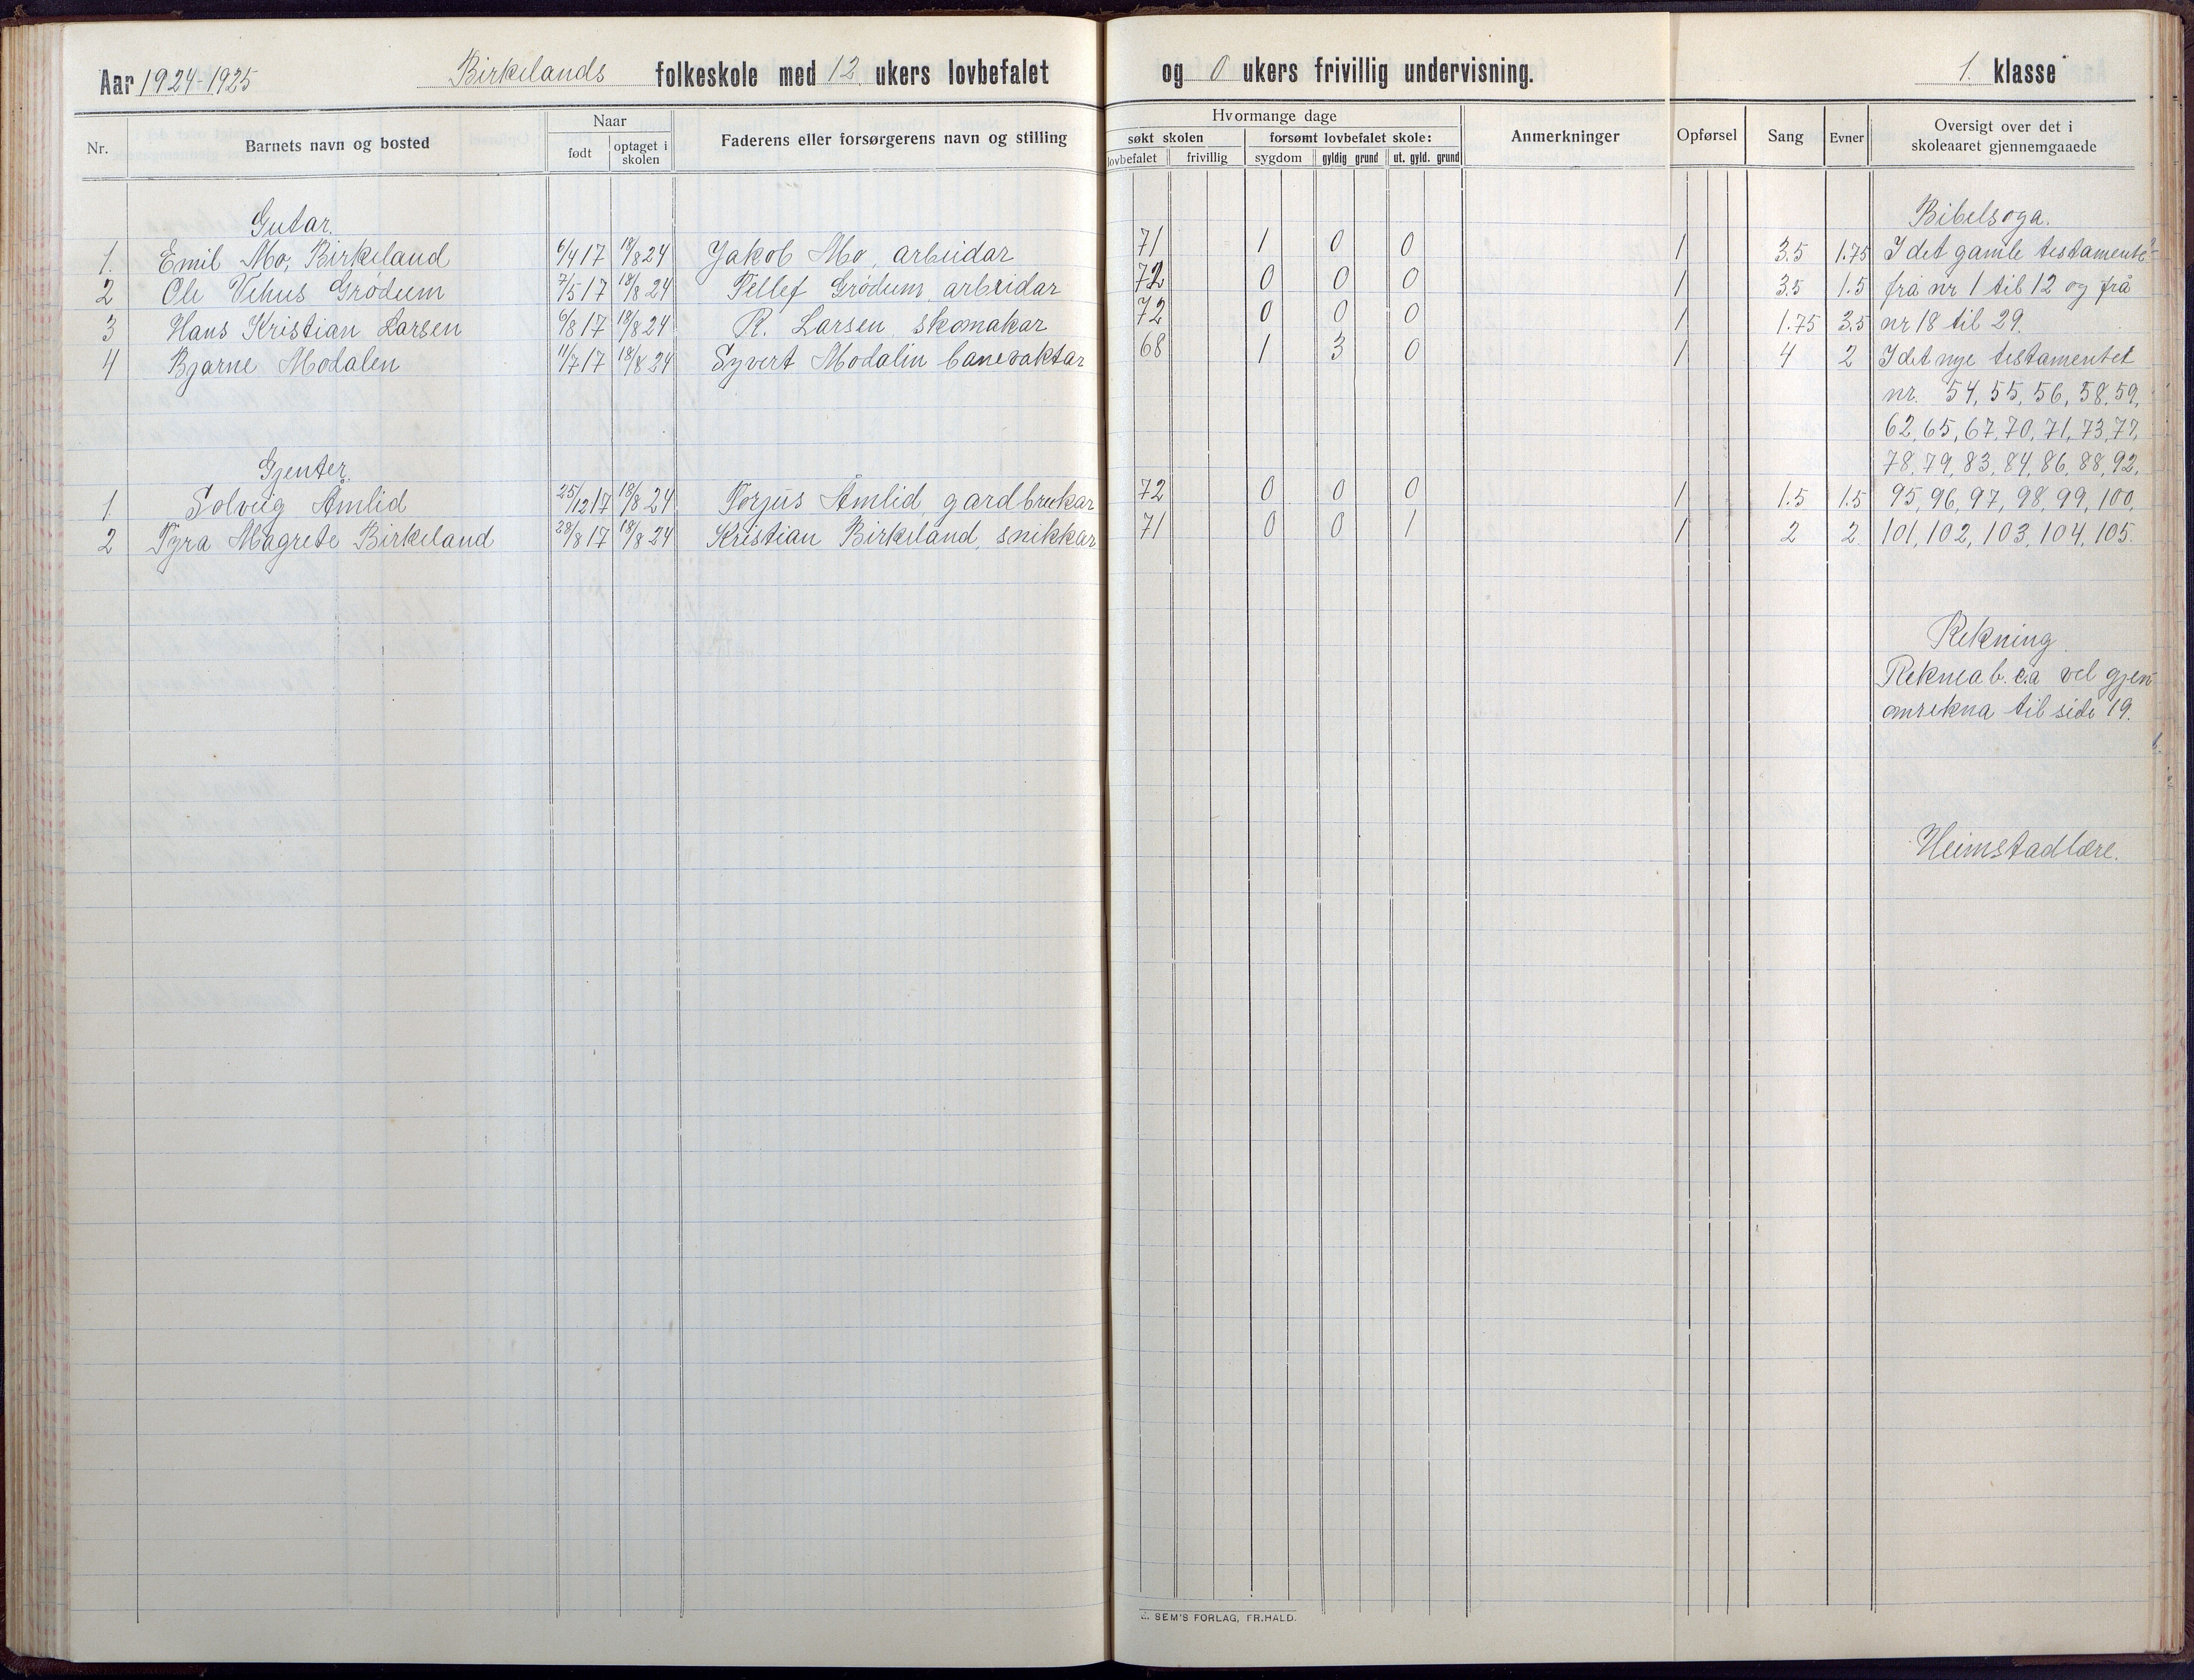 Aar 1924-1925 Birkelands folkeskole med 12 ukers lovbefalet og 0 ukers frivillig undervisning. 1. klasse
Nr. Barnets navn og bosted Naar Faderens eller forsørgerens navn og stilling Hvormange dage Anmerkninger Opførsel Sang Evner Oversigt over det i
skoleaaret gjennemgaaede
født optaget i
skolen
søkt skolen forsømt lovbefalet skole:
lovbefalet frivillig sygdom gyldig grund ut. gyld. grund
Gutar. Bibelsoga.
1. Emil Mo, Birkeland 6/4 17 18/8 24 Jakob Mo, arbeidar 71 1 0 0 1 3.5 1.75 I det gamle testamente
2 Ole Vehus Grødum 7/5 17 18/8 24 Tellef Grødum, arbeidar 72 0 0 0 1 3.5 1.5 frå nr 1 til 12 og frå
3 Hans Kristian Larsen 6/8 17 18/8 24 R. Larsen, skomakar 72 0 0 0 1 1.75 3.5 nr 18 til 29.
4 Bjarne Modalen 11/7 17 18/8 24 Syvert Modalen banevaktar 68 1 3 0 1 4 2 I det nye testamentet
nr. 54, 55, 56, 58, 59,
62, 65, 67, 70, 71, 73, 77,
Gjenter. 78, 79, 83, 84, 86, 88, 92,
1 Solveig Åmlid 25/12 17 18/8 24 Torjus Åmlid, gardbrukar 72 0 0 0 1 1.5 1.5 95, 96, 97, 98, 99, 100,
2 Tyra Magrete Birkeland 28/8 17 18/8 24 Kristian Birkeland, snikkar 71 0 0 1 1 2 2 101, 102, 103, 104, 105.
Rekning.
Reknea b. c.a vel gjen
omrekna til side 19.
Heimstadlære.
E. SEM'S FORLAG, FR.HALD.